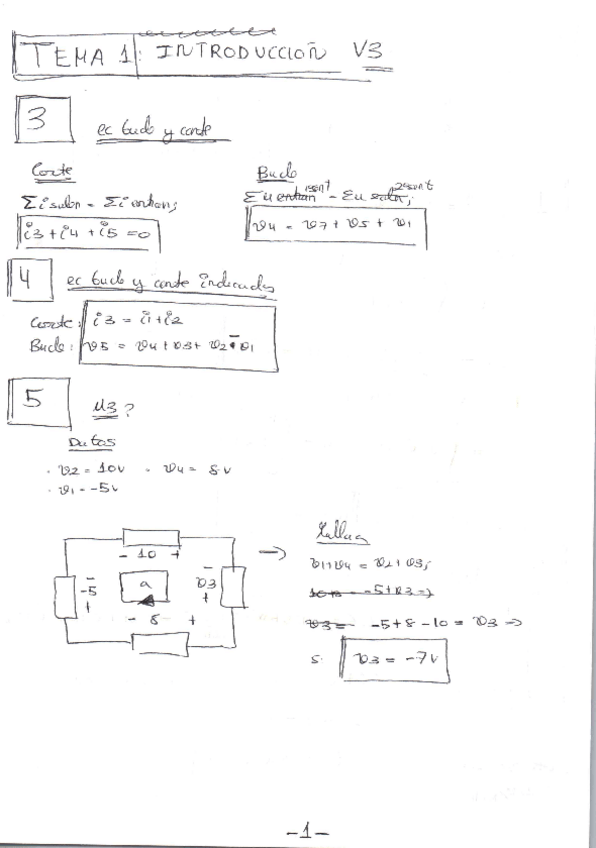 TEMA 1: INTRODUCCIÓN V3
3 ec bucle y corte
Corte
Σi salen = Σi entran;
i3 + i4 + i5 = 0
Bucle
v4 = v7 + v5 + v1
4 ec bucle y corte indicados
Corte: i3 = i1 + i2
Bucle: v5 = v4 + v3 + v2 - v1
5 U3?
Datos
· v2 = 10v · v4 = 8v
· v1 = -5v
- 10 +
-
-5
+
a
-
v3
+
- 8 +
→
v1+v4 = v2+v3;
-5+8-10 = v3 ⇒
v3 = -7v
-1-